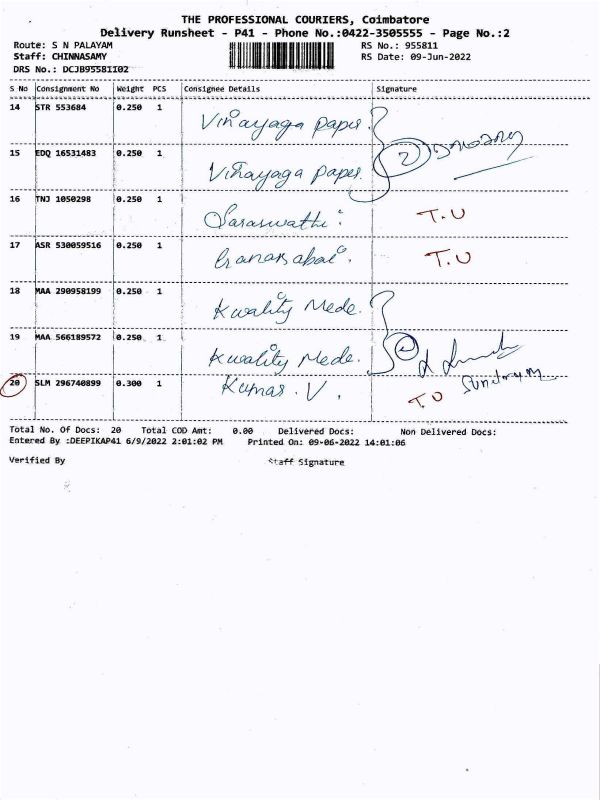 THE PROFESSIONAL COURIERS, Coimbatore
Delivery Runsheet - P41 - Phone No.:0422-3505555 - Page No.:2
Route: S N PALAYAM RS No.: 955811
Staff: CHINNASAMY RS Date: 09-Jun-2022
DRS No.: DCJB95581102
S No Consignment No Weight PCS Consignee Details Signature
14 STR 553684 0.250 1 Vinayaga paper.
15 EDQ 16531483 0.250 1 Vinayaga paper. 2
16 TNJ 1050298 0.250 1 Saraswathi. T.U
17 ASR 530059516 0.250 1 T.U
18 MAA 290958199 0.250 1 Kwality Mede.
19 MAA 566189572 0.250 1 Kwality Mede.
20 SLM 296740899 0.300 1 Kumar. V. T.U
Total No. Of Docs: 20 Total COD Amt: 0.00 Delivered Docs: Non Delivered Docs:
Entered By :DEEPIKAP41 6/9/2022 2:01:02 PM Printed On: 09-06-2022 14:01:06
Verified By Staff Signature